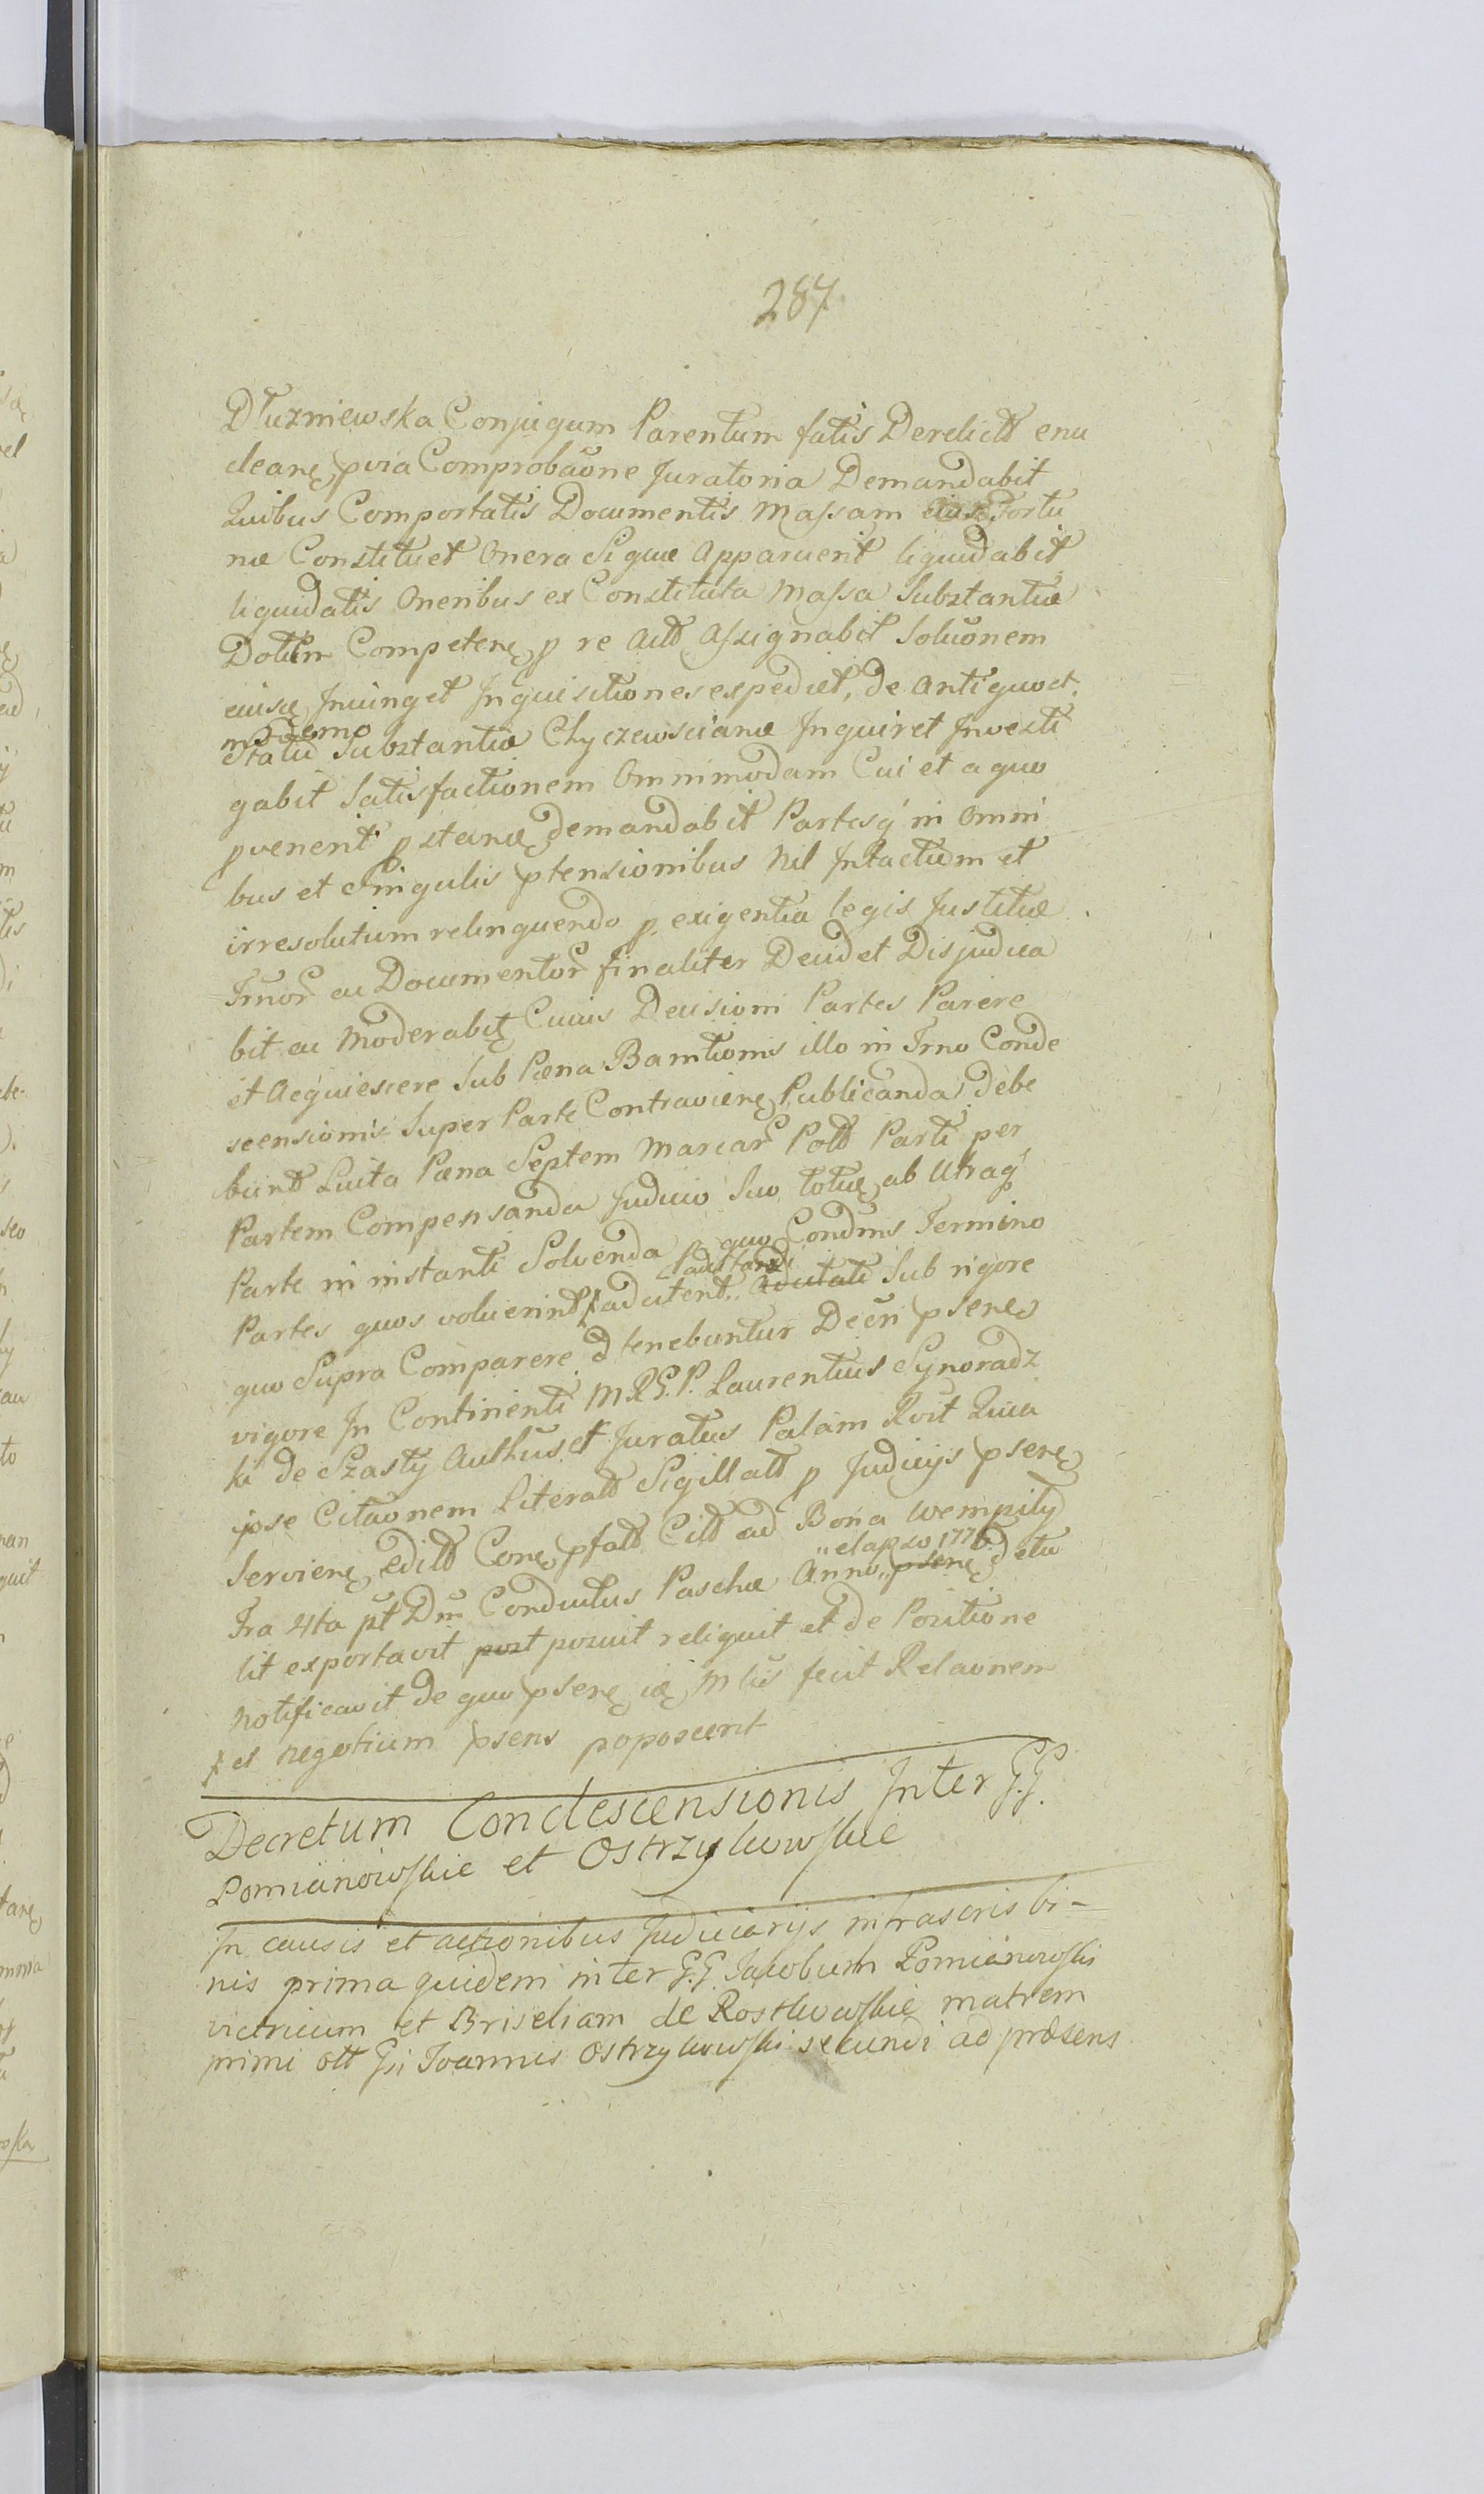 287.
Dłuzniewska Conjugum Parentum fatis Derelictt enu
cleanę pvia Comprobaõne Juratoria Demandabit
Quibus Comportatis Documentis Massam Fortu
næ Constituet Onera Si quæ Apparuerit liquidabit
liquidatis Oneribus ex Constituta Massa Substantiæ
Dotem Competenę p re Actt Assignabit Soluõnem
eiusę Iniunget Inquisitiones expediet, de Antiquo et
moderno
Statu Substantiæ Chyczewscianæ Inquiret Investi
gabit Satisfactionem Omnimodam Cui et a quo
pvenerit pstanæ demandabit Partesq́ in Omni
bus et Singulis ptensionibus Nil Intactum et
irresolutum relinquendo p. exigentia legis Justitiæ
Jrnor ac Documentor finaliter Decidet Disjudica
bit ac Moderabitę Cuius Decisioni Partes Parere
et Acquiescere Sub Pæna Bannitionis illo in Trno Conde
scensionis Super Parte Contravienę Publicanda debe
bunt Luita Pæna Septem Marcar Pott Parti per
Partem Compensanda Judicio Suo totæ ab Utraq́
Parte in instanti Solvenda quo Condnis Termino
Partes quos voluerint adcitent Adcitati Sub rigore
quo Supra Comparere d tenebuntur Decri psenę
vigore In Continenti M.R.G.P. Laurentius Synoradz
ki de Szasty Authus et Juratus Palam Rvit Quia
ipse Citaõnem Literatt Sigillatt p Judicijs psenę
Servienę editt Conę pfatt Citt ad Bona Wempity
elapso 1776
Fra 4ta pt Dm Conductus Paschæ Anno psenę detu
lit exportavit post posuit reliquit et de Positione
Notificavit de quo psenę ię Mtis fecit Relaõnem
et negotium psens poposcerit
Decretum Condescensionis Inter G.G.
Pomianowskie et Ostrzykowskie
In causis et actionibus Judiciarijs infrascris bi-
nis prima quidem inter G.G. Jacobum Pomianowski
victricum et Briseliam de Rostkowskie matrem
primi Ott Gsi Joannis Ostrzykowski secundi ad præsens